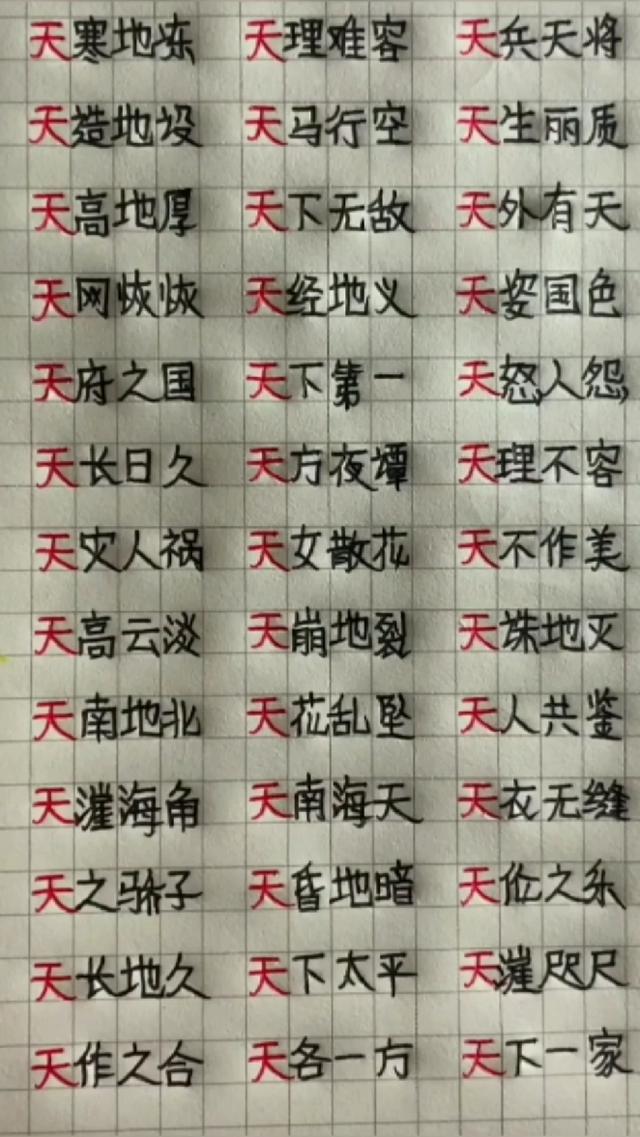 天寒地冻 天理难容 天兵天将
天造地设 天马行空 天生丽质
天高地厚 天下无敌 天外有天
天网恢恢 天经地义 天姿国色
天府之国 天下第一 天怒人怨
天长日久 天方夜谭 天理不容
天灾人祸 天女散花 天不作美
天高云淡 天崩地裂 天诛地灭
天南地北 天花乱坠 天人共鉴
天漄海角 天南海天 天衣无缝
天之骄子 天昏地暗 天伦之乐
天长地久 天下太平 天漄咫尺
天作之合 天各一方 天下一家